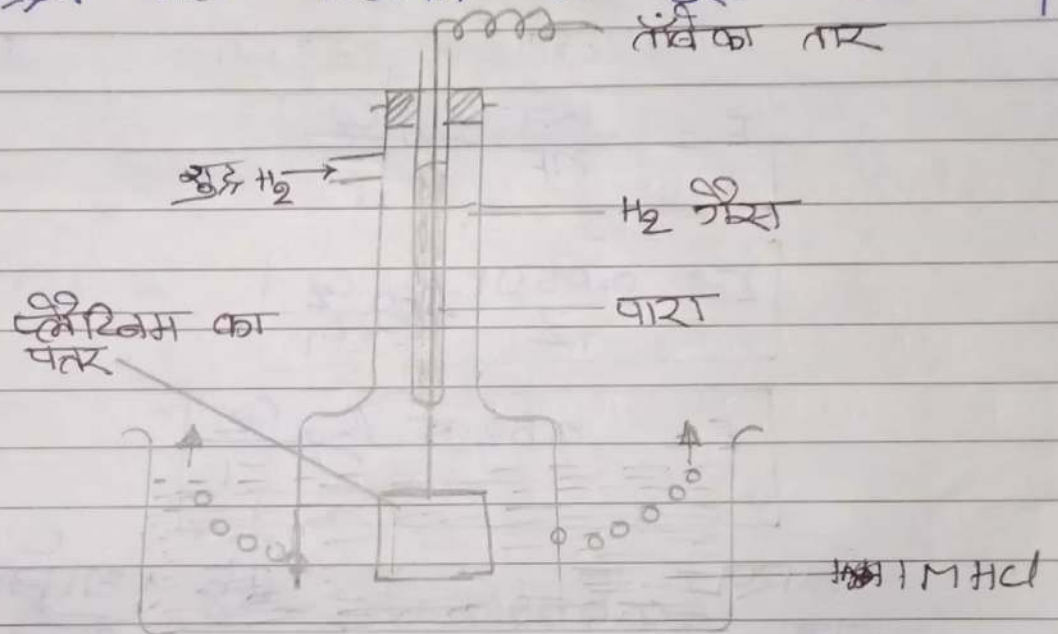 ताँबे का तार
शुद्ध H2 →
H2 गैस
पारा
प्लैटिनम का
पतर
1 M HCl